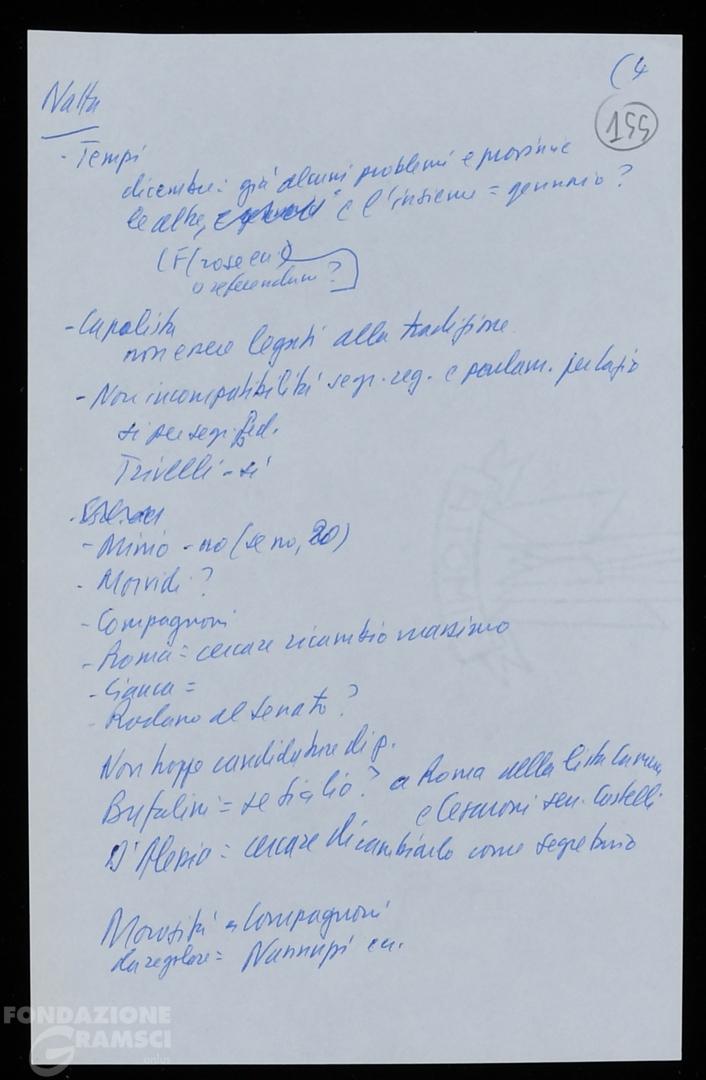 (4
155
Natta
- Tempi
dicembre: già alcuni problemi e province
le altre, e l'insieme = gennaio?
(F(
o referendum?
- Capolista
non essere legati alla tradizione
- Non incompatibilità segr. reg. e parlam. per Lazio
si per segr. fed.
Trivelli - si
- Minio - no (se no, 20)
- Morvidi?
- Compagnoni
- Roma = cercare ricambio massimo
- Cianca =
- Rodano al Senato?
Non troppe candidature di p.
Bufalini = se Siglio? a Roma nella lista Camera
e Cesaroni sen. Castelli
D'Alessio = cercare di cambiarlo come segretario
Morositá Compagnoni
da regolare = Nannuzzi
FONDAZIONE
GRAMSCI
onlus